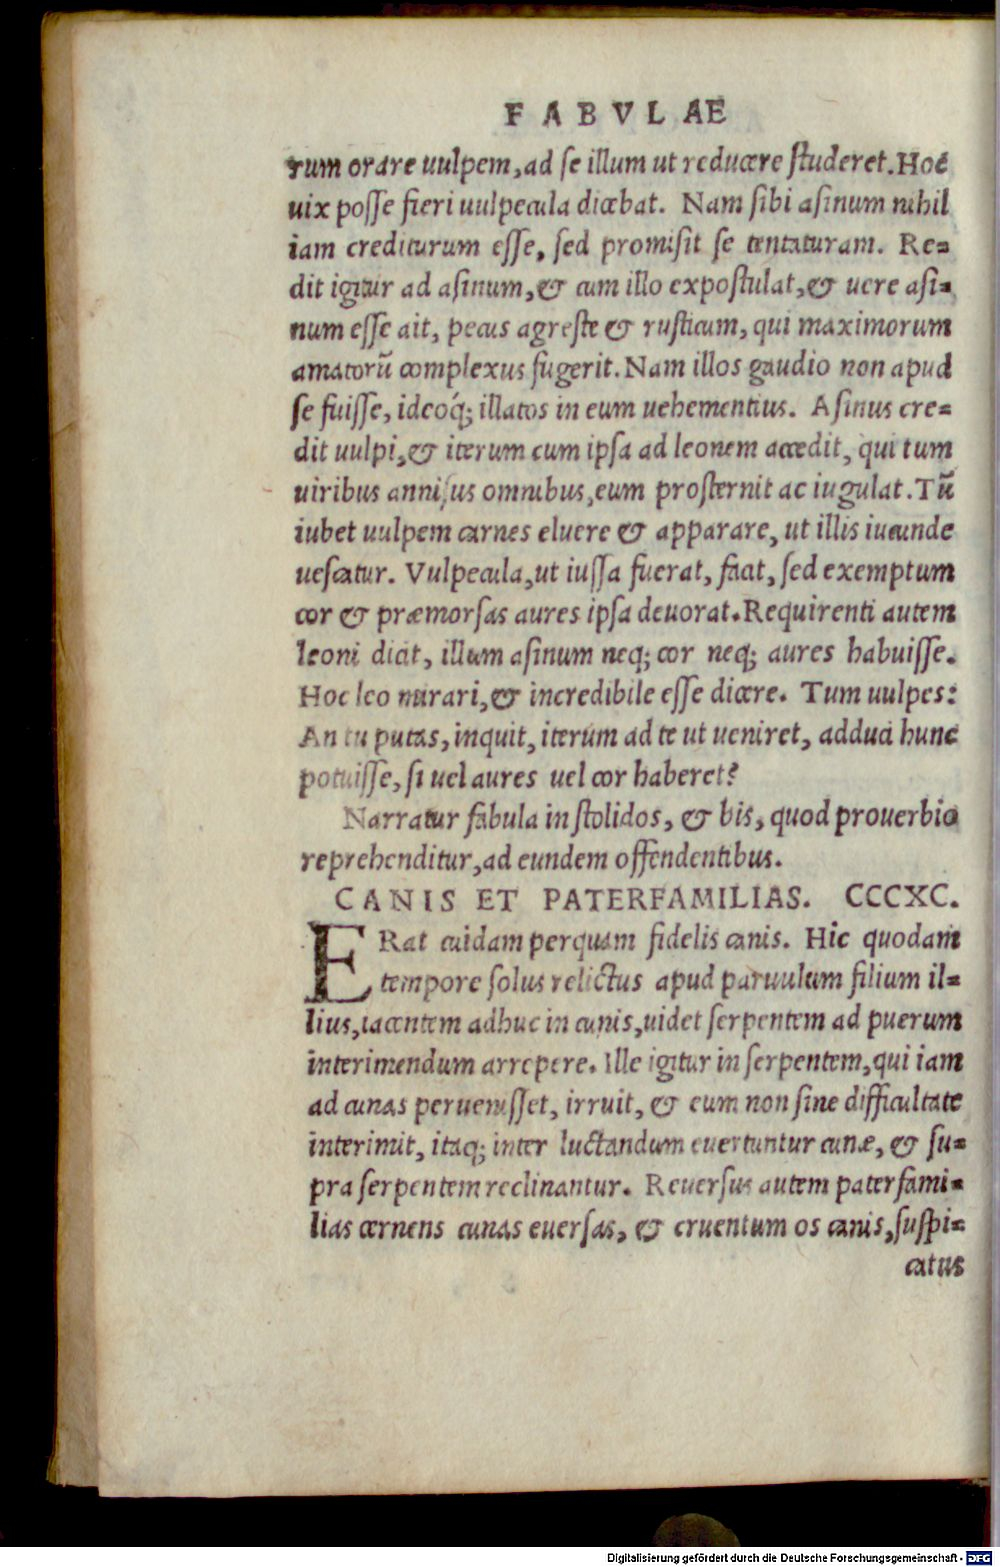 FABVLAE
rum orare uulpem, ad se illum ut reducere studeret. Hoc
uix posse fieri uulpecula dicebat. Nam sibi asinum nihil
iam crediturum esse, sed promisit se tentaturam. Re=
dit igitur ad asinum, & cum illo expostulat, & uere asi=
num esse ait, pecus agreste & rusticum, qui maximorum
amatorũ complexus fugerit. Nam illos gaudio non apud
se fuisse, ideoq́; illatos in eum uehementius. Asinus cre=
dit uulpi, & iterum cum ipsa ad leonem accedit, qui tum
uiribus annisus omnibus, eum prosternit ac iugulat. Tũ
iubet uulpem carnes eluere & apparare, ut illis iucunde
uescatur. Vulpecula, ut iussa fuerat, facit, sed exemptum
cor & præmorsas aures ipsa deuorat. Requirenti autem
leoni dicit, illum asinum neq; cor neq; aures habuisse.
Hoc leo mirari, & incredibile esse dicere. Tum uulpes:
An tu putas, inquit, iterum ad te ut ueniret, adduci hunc
potuisse, si uel aures uel cor haberet?
Narratur fabula in stolidos, & bis, quod prouerbio
reprehenditur, ad eundem offendentibus.
CANIS ET PATERFAMILIAS. CCCXC.
ERat cuidam perquam fidelis canis. Hic quodam
tempore solus relictus apud paruulum filium il=
lius, iacentem adhuc in cunis, uidet serpentem ad puerum
interimendum arrepere. Ille igitur in serpentem, qui iam
ad cunas peruenisset, irruit, & eum non sine difficultate
interimit, itaq; inter luctandum euertuntur cunæ, & su=
pra serpentem reclinantur. Reuersus autem paterfami=
lias cernens cunas euersas, & cruentum os canis, suspi=
catus
Digitalisierung gefördert durch die Deutsche Forschungsgemeinschaft - DFG